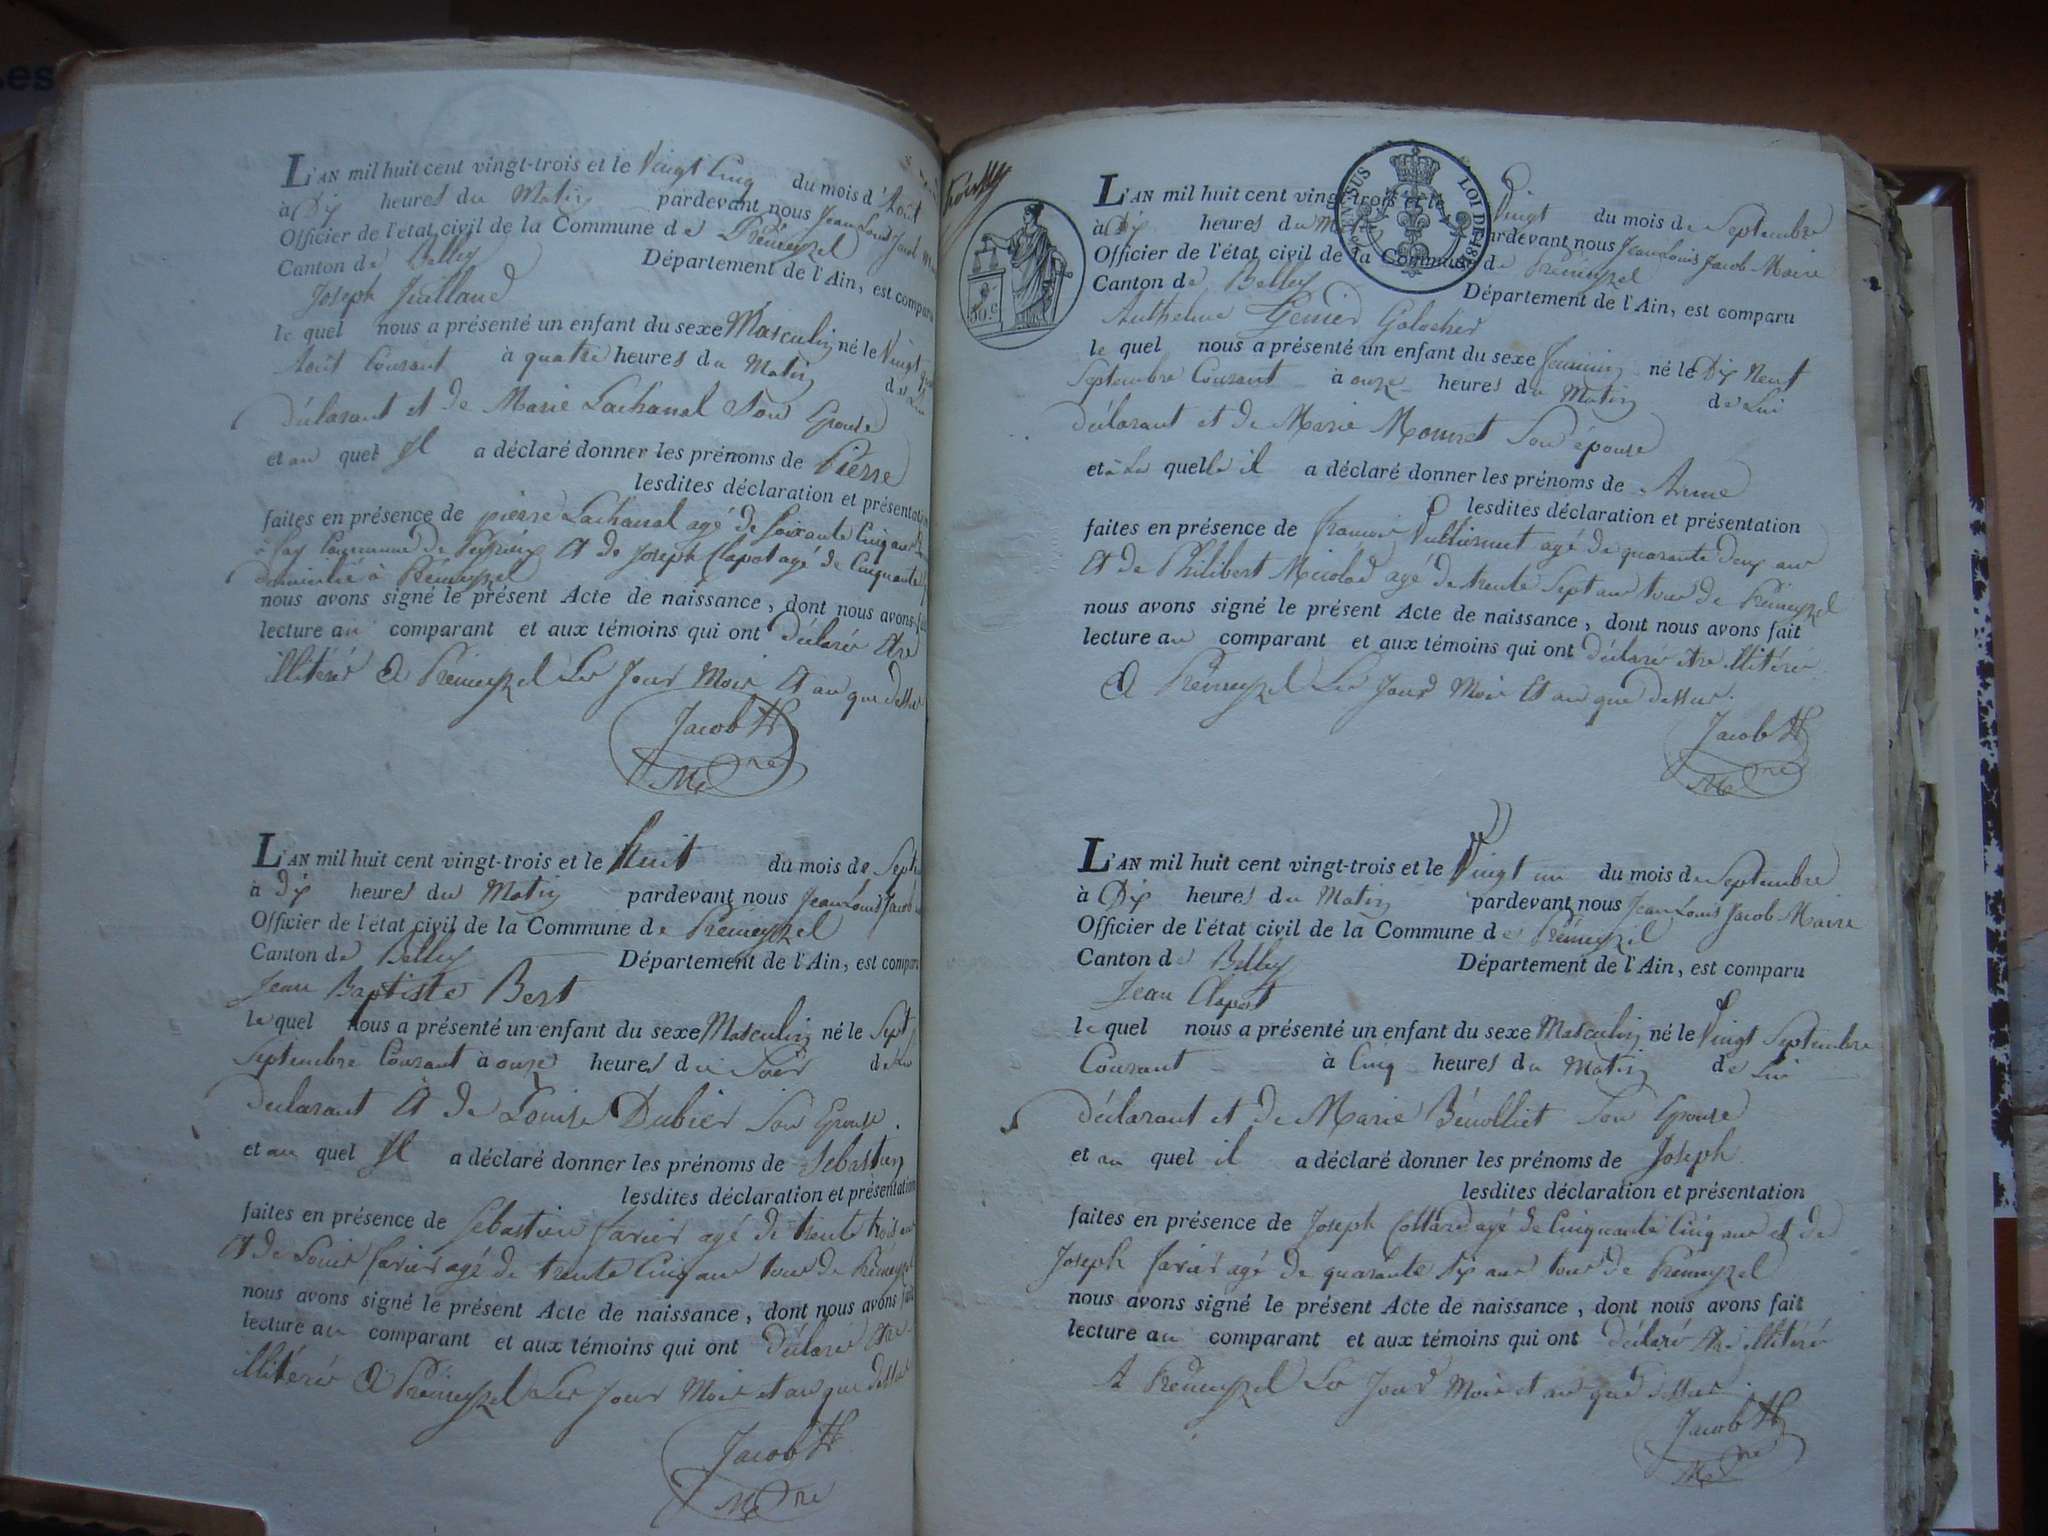 L'AN mil huit cent vingt-trois et le Vingt Cinq du mois d'Août
à Dix heures du Matin pardevant nous Jean Louis Jacob
Officier de l'état civil de la Commune de Prémeyzel
Canton de Belley Département de l'Ain, est comparu
Joseph Juilland
le quel nous a présenté un enfant du sexe Masculin né le Vingt
Août Courant à quatre heures du Matin de Lui
déclarant et de Marie Lachanal Son Epouse
et au quel Il a déclaré donner les prénoms de Pierre
lesdites déclaration et présentation
faites en présence de pierre Lachanal agé de Soixante Cinq ans
Commune de Et de Joseph Clapot agé de Cinquante
domicilié à Prémeyzel
nous avons signé le présent Acte de naissance, dont nous avons fait
lecture au comparant et aux témoins qui ont déclaré Etre
illitéré A Prémeyzel Les Jour Mois Et an que dessus
Jacob
Mre
L'AN mil huit cent vingt-trois et le huit du mois de Sept
à dix heures du Matin pardevant nous Jean Louis Jacob
Officier de l'état civil de la Commune de Prémeyzel
Canton de Belley Département de l'Ain, est comparu
Jean Baptiste Bert
le quel nous a présenté un enfant du sexe Masculin né le Sept
Septembre Courant à onze heures du Soir de Lui
déclarant Et de Louise Dubier Son Epouse
et au quel Il a déclaré donner les prénoms de Sebastien
lesdites déclaration et présentation
faites en présence de Sebastien favier agé de trente trois ans
Et de Louis favier agé de trente Cinq ans tous de Prémeyzel
nous avons signé le présent Acte de naissance, dont nous avons fait
lecture au comparant et aux témoins qui ont déclaré Etre
illitéré A Prémeyzel Les Jour Mois et an que dessus
Jacob
Mre
LOI DE 181
30.C
L'AN mil huit cent vingt-trois et le Vingt du mois de Septembre
à Dix heures du Matin pardevant nous Jean Louis Jacob Maire
Officier de l'état civil de la Commune de Prémeyzel
Canton de Belley Département de l'Ain, est comparu
Anthelme Genier Galocher
le quel nous a présenté un enfant du sexe feminin né le Dix Neuf
Septembre Courant à onze heures du Matin de Lui
déclarant et de Marie Mouret Son épouse
et à La quelle il a déclaré donner les prénoms de Anne
lesdites déclaration et présentation
faites en présence de françois Vulliermet agé de quarante deux ans
Et de Philibert agé de trente Sept ans tous de Prémeyzel
nous avons signé le présent Acte de naissance, dont nous avons fait
lecture au comparant et aux témoins qui ont déclaré être illitéré
A Prémeyzel Les Jour Mois Et an que dessus.
Jacob
Mre
L'AN mil huit cent vingt-trois et le Vingt un du mois de Septembre
à Dix heures du Matin pardevant nous Jean Louis Jacob Maire
Officier de l'état civil de la Commune de Prémeyzel
Canton de Belley Département de l'Ain, est comparu
Jean Clapot
le quel nous a présenté un enfant du sexe Masculin né le Vingt Septembre
Courant à Cinq heures du Matin de Lui
déclarant et de Marie Bénolliet Son Epouse
et au quel il a déclaré donner les prénoms de Joseph
lesdites déclaration et présentation
faites en présence de Joseph Cottard agé de Cinquante Cinq ans et de
Joseph favier agé de quarante Six ans tous de Prémeyzel
nous avons signé le présent Acte de naissance, dont nous avons fait
lecture au comparant et aux témoins qui ont déclaré Etre illitéré
A Prémeyzel Les Jour Mois et an que dessus.
Jacob
Mre